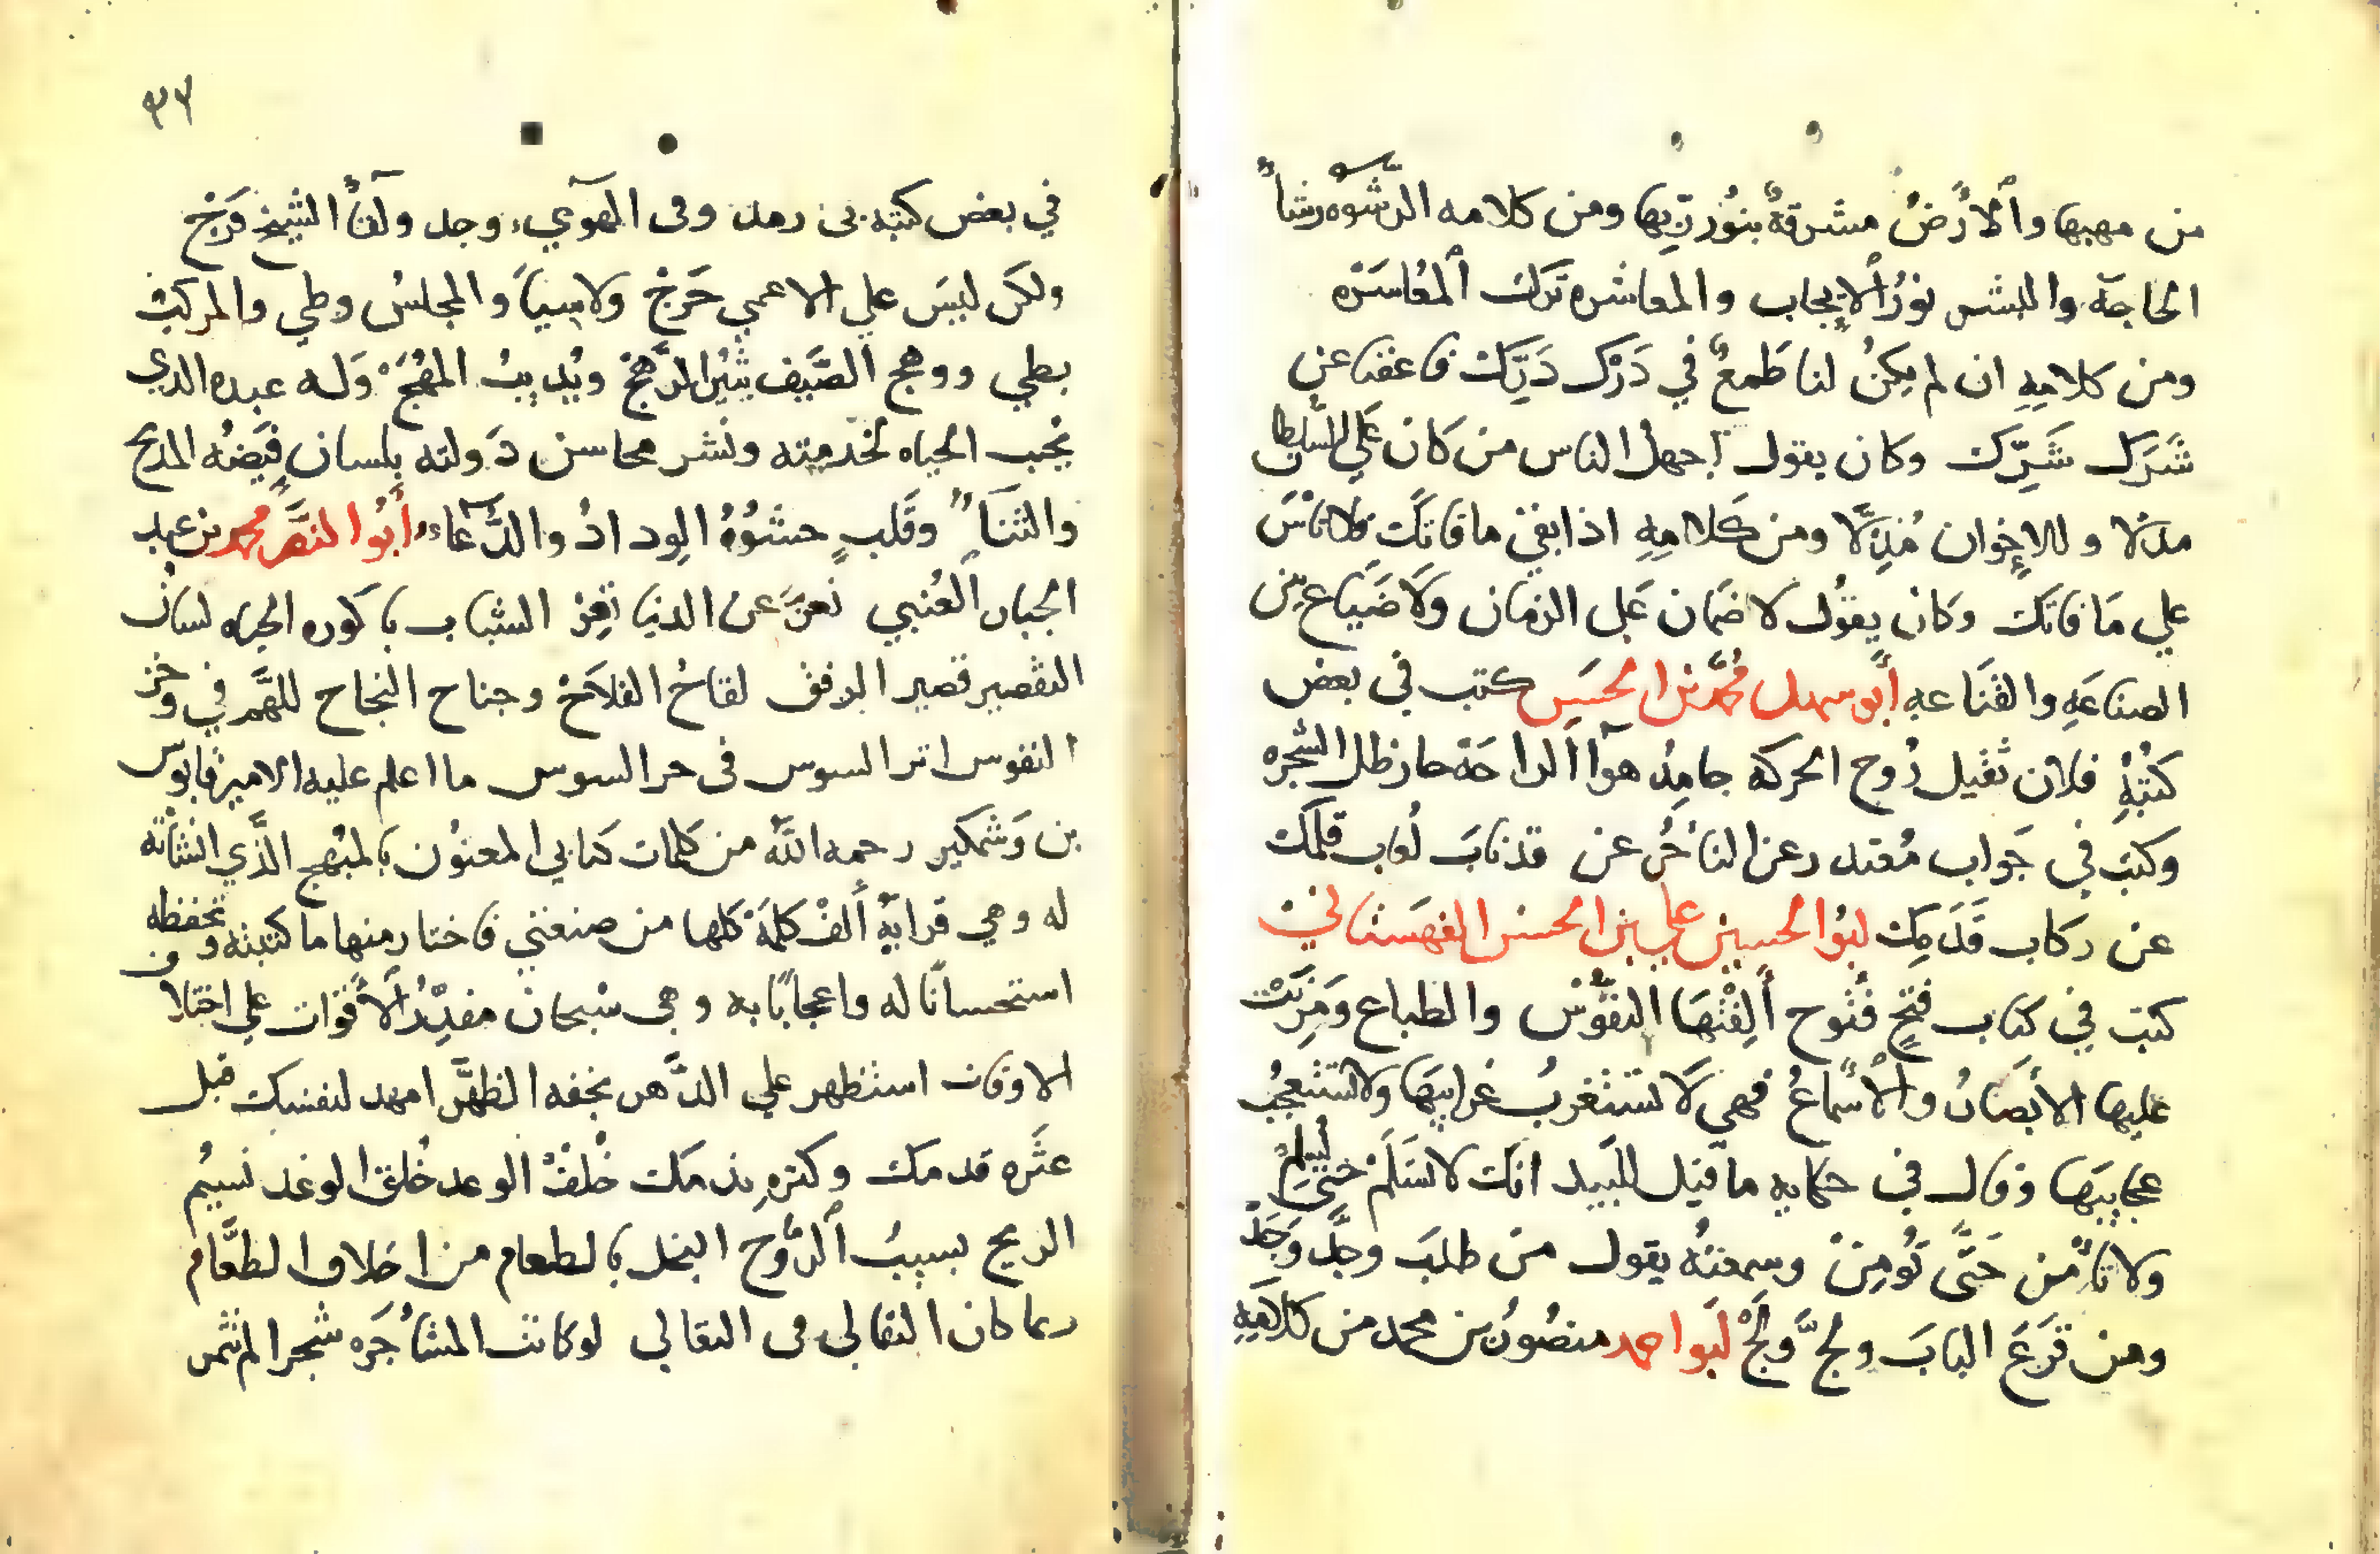 من مهبها والأرضُ مشرقةٌ بنُور ربّها ومن كلامه الرشوه رشاً
الحاجة والبشر نورُ الإيجاب والمعاشره ترك المُعَاسَرَه
ومن كلامِهِ ان لم يكنْ لنا طَمعٌ في دَرْك دَرِّك فاعفنا عن
شَرَك شَرِّك وكان يقول اجهل الناس من كان علي السلطان
مدلا وللإخوان مُذِلّا ومن كلامِهِ اذا بقي ما قاتَك فلا تأسَ
علي مَا فاتَك وكان يقوُل لا ضمَان عَلي الزمان ولَا ضَيَاع بين
الصناعَهِ والقنَاعهِ أبو سهل مُحَمَّد بن الحسَن كتب في بعض
كتُبْهِ فلان ثقيل رُوح الحركه جامِدُ هوآ الراحَة حار ظل الشجره
وكتب في جَواب مُعتد رعن النأخُّر عن قد نابَ لُعاب قلمك
عن ركاب قَدَمِك ابُوا الحسين علي بن الحسن القهستاني
كتب في كتاب فتحٍ فُتُوح أَلِفَتْهَا النفُوْس والطباع وَمَرِنَتْ
عليها الأبْصَارُ والأسْماعُ فهي لَا تستغربُ غرايبَها ولا تستعجبُ
عجايبَها وقال في حكايه ما قيل للبَيد انك لا تسَلَم حَتَّى تُسِلَم
ولا تأمَن حَتَّى تُومِنْ وسمعتهُ يقول من طلبَ وجَدَّ وَجَدْ
ومن قَرَعَ البابَ ولجَّ وَلَجْ ابَو احمد منصُور بن محمد من كلامِهِ
في بعض كتبه بى رمد وفى الهوآيء وجد ولقأ الشيخ فَرَجْ
ولكن ليسَ علي الاعمي حَرَجْ ولاسِيماً والمجلسُ وطي والمركبْ
بطي ووهج الصَّيف يثيُر الرَّهَجْ ويُديبُ المُهَجْ وَله عبده الدي
يحب الحياه لخدمِته ونشر محاسن دَولته بلسان فيَضهُ المدح
والثنآ وقَلبٍ حشوُهُ الوِدادُ والدُّعآء أبوُا النصَّر محمد بن عبد
الجبار العُتبي تعزَّ عن الدنيا تعِزْ الشباب باكَوره الحياه لسان
التقصير قصير الرفق لقاحُ الفلَاحْ وجناح النجاح للهَّم في وخز
النفوس اثر السوس فى حر السوس ما اعلم عليه الامير قابوس
بن وَشمكير رحمه اللّه من كلمات كتابي المعنوُن بالمبُهج الذَّي انشأتُه
له وهي قرابهُ ألفْ كلمَة كلها من صنعتي فاختار منها ما كتبته وتحفظه
استحسانًا له واعجابًا به وهى سُبحان مقدِّرُ الأقوَات علي اختلاف
الاوقات استظهر علي الدَّهر بخفه الظهَّر امهد لنفسك قبل
عثَره قدمك وكثرهِ ندمَك خُلفْ الوعد خُلق الوغد نسيم
الريح نسيب الرُّوح البخل بالطعام من اخلاق الطغَّام
ربما كان التقالي فى التعالي لو كانت المشأجَره شجرا لم تثمر